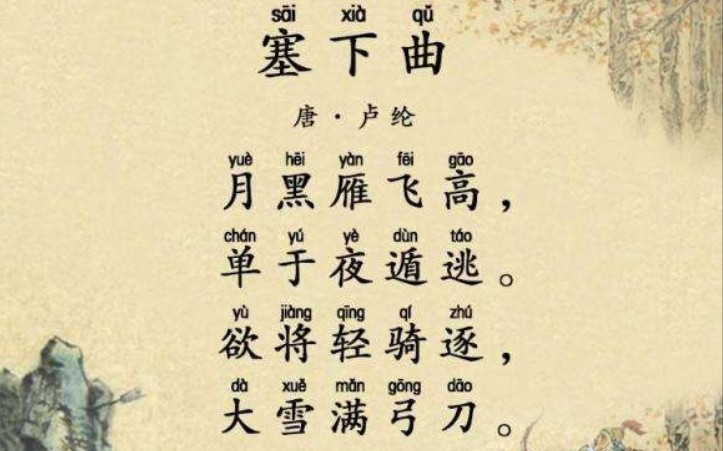 sāi xià qǔ
塞下曲
唐·卢纶
yuè hēi yàn fēi gāo
月黑雁飞高，
chán yú yè dùn táo
单于夜遁逃。
yù jiàng qīng qí zhú
欲将轻骑逐，
dà xuě mǎn gōng dāo
大雪满弓刀。